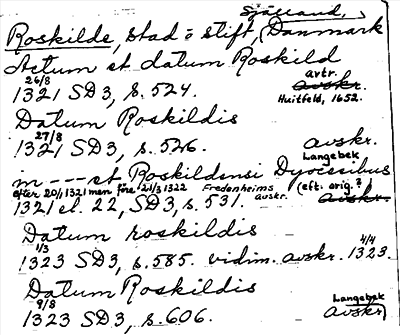 Själland,
Roskilde, stad o stift, Danmark
Actum et datum Roskild
26/8 avtr.
1321 SD3, s. 524. avskr.
Huitfeld, 1652.
Datum Roskildis
27/8
1321 SD3, s. 526. avskr.
Langebek
in --- et Roskildensi Dyocesibus
efter 20/1 1321 men före 21/3 1322 Fredenheims (eft. orig.?
1321 el. 22, SD3, s. 531. avskr. avskr.
Datum roskildis
1/3 4/4
1323 SD3, s. 585. vidim. avskr. 1323.
Datum Roskildis
9/8 Langebek
1323 SD3, s. 606. avskr.